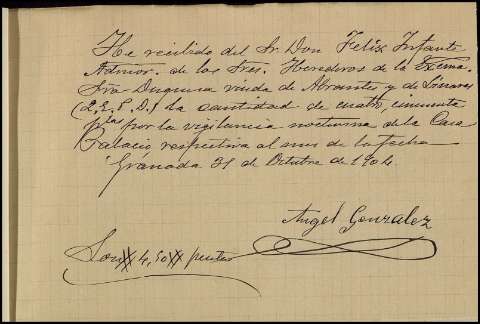 He recibido del Sr. Don Felix Infante
Admor. de los Sres. Herederos de la Excma.
Sra Duquesa viuda de Abrantes y de Linares
(Q.E.P.D.) la cantidad de cuatro cincuenta
ptas por la vigilancia nocturna de la Casa
Palacio respectiva al mes de la fecha
Granada 31 de Octubre de 1904
Angel Gonzalez
Son 4,50 pesetas